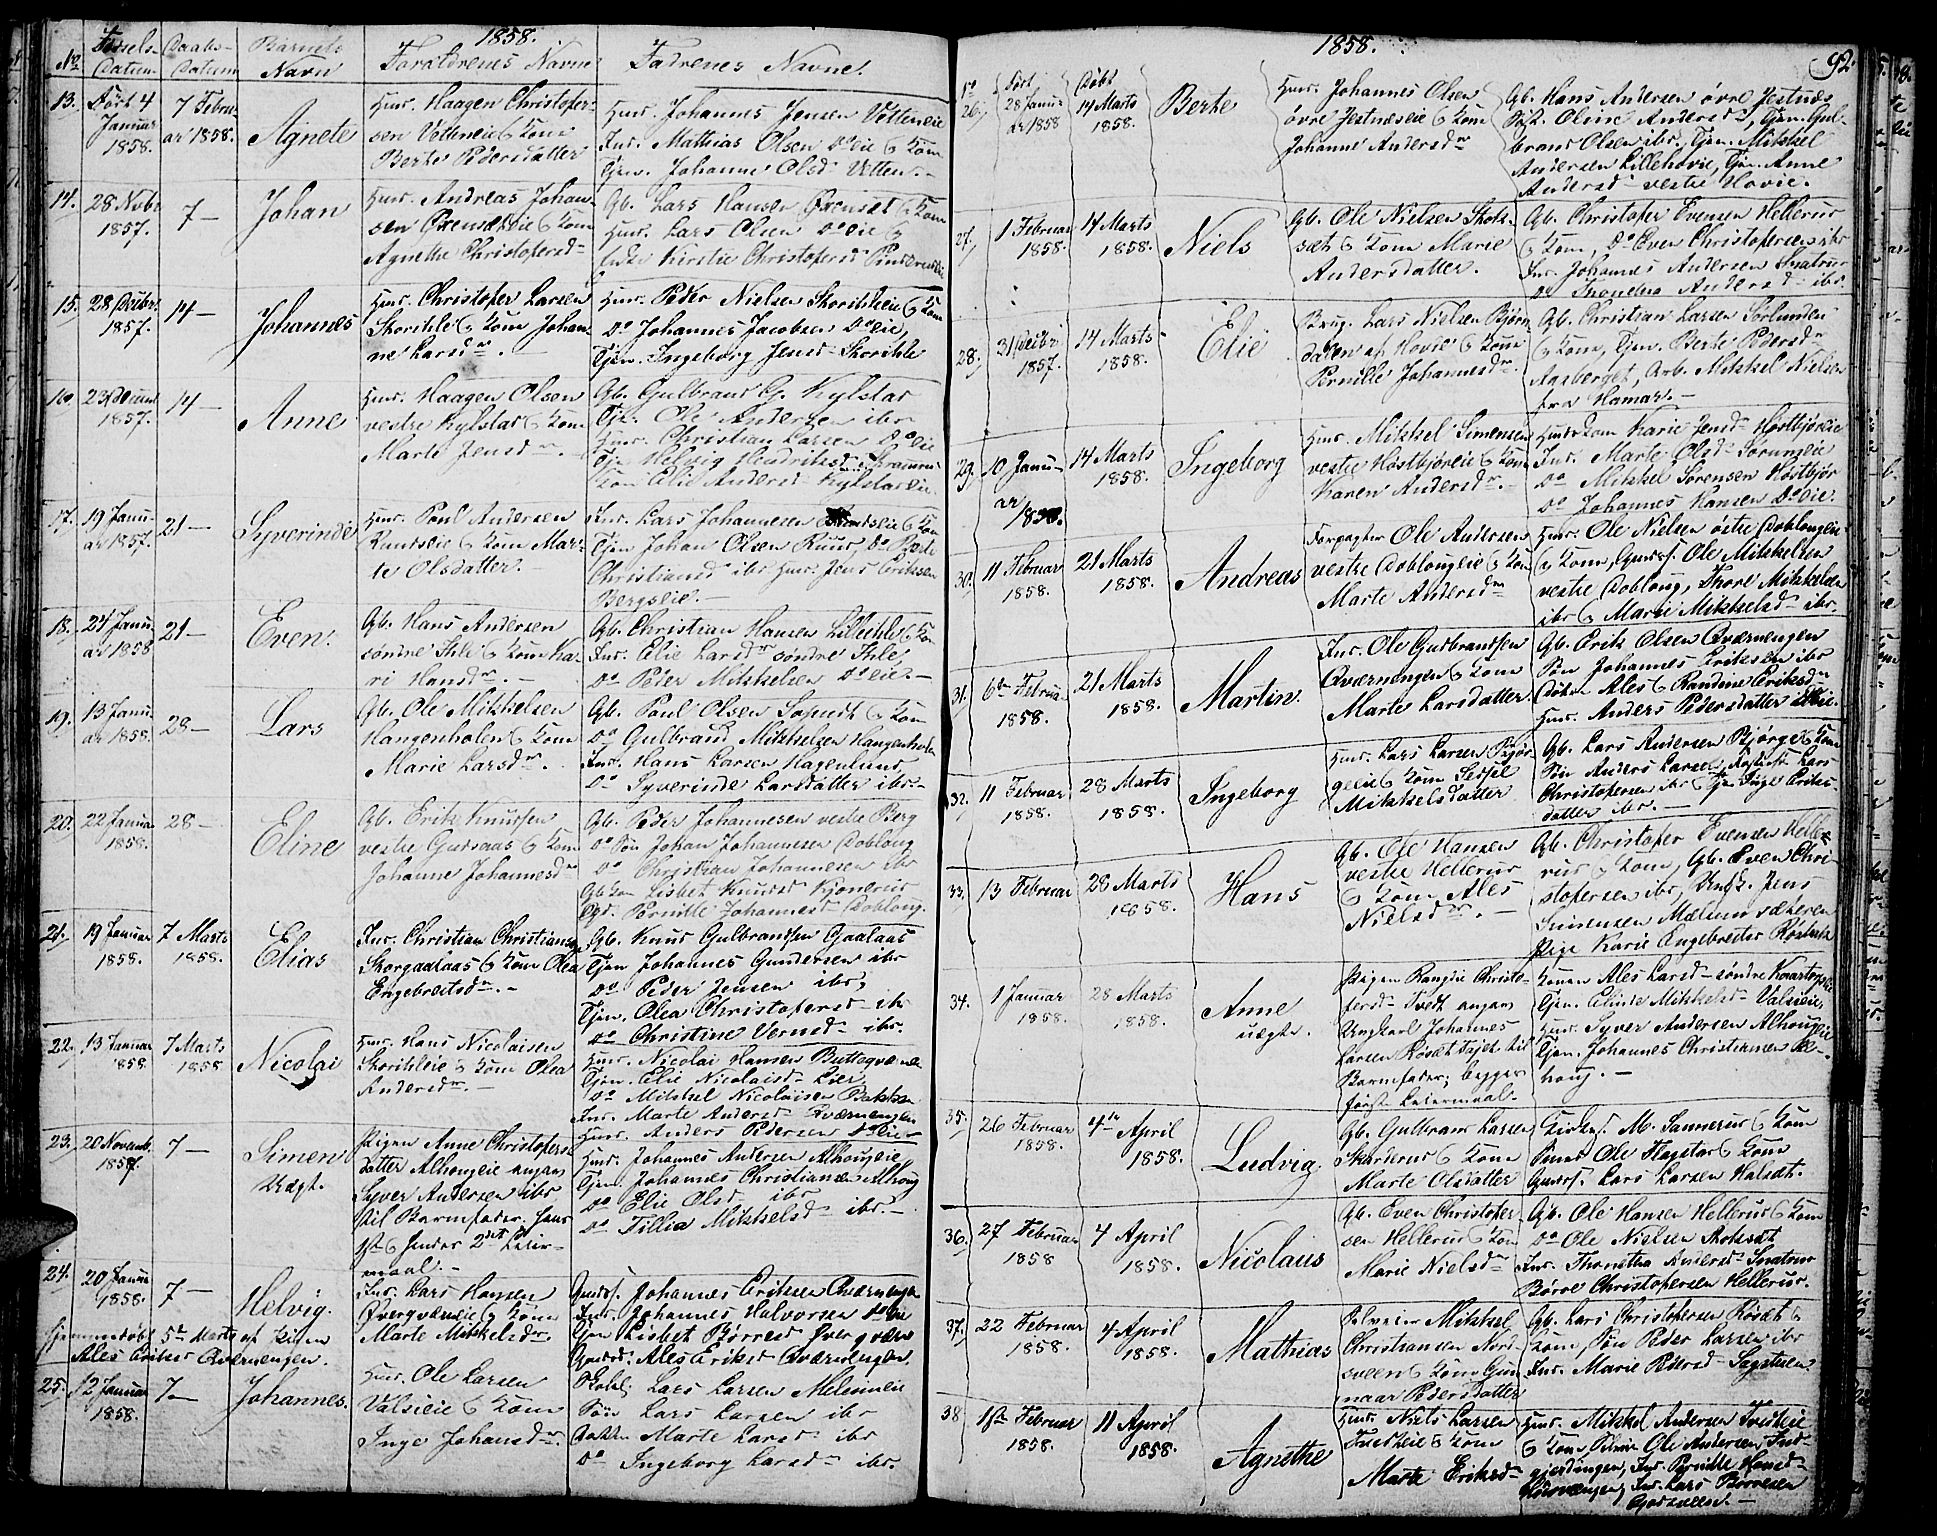 1858.
No
Fødsels-
Datum
Daabs-
Datum
Barnets
Navn
Forældrenes Navne
Fadrenes Navne.
13. Født 4 Januar 1858.
7 Februar 1858.
Agnete
Huus. Haagen Christofer-
sen Vetteneie & Kone
Berte Pedersdatter
Huus. Johannes Jensen Vetteneie
Ins. Mathias Olsen Do eie & Kone
Tjen. Johanne Olsd Vetten.
14. 28 Novbr 1857.
7 —
Johan
Huus. Andreas Johan-
sen & Kone
Agnethe Christofersd
Gb. Lars Hansen & Kone
Huus. Lars Olsen Do eie &
Kirstie Christofersd
15. 28 Decbr. 1857.
14 —
Johannes
Huus. Christofer Larsen
Skorihle & Kone Johan-
ne Larsdr.
Huus. Peder Nielsen Skorihleie & Kone
Do Johannes Jacobsen Do eie,
Tjen. Ingeborg Jensd Skorihle
16. 23 1857.
14 —
Anne
Huus. Haagen Olsen
vestre Kylstad & Kone
Marte Jensdr.
Gb. Gulbrand G. Kylstad
Tjen. Ole Andersen ibr
Huus. Christian Larsen Do eie
Tjen Helvig Hendriksd
Kone Elie Andersd Kylstadeie.
17. 19 Janu-
ar 1857.
21 —
Syverinde
Huus. Poul Andersen
& Kone Mar-
te Olsdatter.
Ins. Lars Johannesen & Kone
Tjen Johan Olsen Ruud, Do Berte
Christiansd ibr Huus. Jens Eriksen
Bergseie.
18. 24 Janu-
ar 1858
21 —
Even.
Gb. Hans Andersen
søndre Ihle & Kone Ka-
ri Hansdr.
Gb. Christian Hansen Lilleihle & Kone
Ins. Elie Larsdr søndre Ihle,
Do Peder Mikkelsen Do eie.
19. 13 Janu-
ar 1858.
28 —
Lars
Gb. Ole Mikkelsen
Hangenholen & Kone
Marie Larsdr.
Gb. Poul Olsen & Kone
Do Gulbrand Mikkelsen Hangenholen
Ins. Hans Larsen Hagenlund
Do Syverinde Larsdatter ibr.
20. 22 Januar 1858.
28 —
Eline
Gb. Erik Knutsen
vestre & Kone
Johanne Johannesdr
Gb. Peder Johannesen vestre Berg
Do Søn Johan Johannesen Doblong
Do Christian Johannesen ibr
Gb Kone Lisbet Knutsd
Pernille Johannesd Doblong.
21. 19 Januar 1858.
7 Marts 1858.
Elias
Ins. Christian Christians
Skorgaalaas & Kone Olea
Engebretsdr.
Gb. Knud Gulbrandsen Gaalaas
Tjen Johannes Gundersen ibr
Do Peder Jensen ibr,
Tjen. Olea Christofersd ibr
Do Christine Vernsd ibr.
22. 13 Januar 1858.
7 Marts 1858
Nicolai
Huus. Hans Nicolaisen
Skorihleie & Kone Olea
Andersdr.
Huus. Nicolai Hansen
Tjen. Elie Nicolaisd Lier,
Do Mikkel Nicolaisen Bakken
Ins. Marte Andersd Qværnengen
Huus. Anders Pedersen Do eie
23. 20 Novemb. 1857.
7 —
Simen
Uægt.
Pigen Anne Christofers-
datter Alhougeie angav
Syver Andersen ibr
til Barnefader. Hans
1ste & hendes 2det Leier-
maal.
Huus. Johannes Andersen Alhougeie
Tjen. Johannes Christiansen Alhoug
Do Elie Olsd ibr
Do Tillia Mikkelsd ibr.
24. 20 Januar 1858.
7 —
Helvig.
Hjemmedøbt 5te Marts af Pigen
Ales Eriksd Qværnengen.
Ins. Lars Hansen
& Kone
Marte Mikkelsdr.
Gaards. Johannes Eriksen Qværnengen
Ins. Johannes Halvorsen Do eie
Tjen Lisbet Børresd
Gaardsd. Ales Eriksd Qværnengen
25. 12 Januar 1858.
7 —
Johannes.
Huus. Ole Larsen
Valsieie & Kone
Inge Johansdr.
Lars Larsen Melumeie
Søn Lars Larsen ibr
Marte Larsd ibr
Do Ingeborg Larsd ibr.
1858.
92.
No
Født
Døbt
26. 28 Janu-
ar 1858
14 Marts 1858.
Berte
Huus. Johannes Olsen
øvre Jestnæseie & Kone
Johanne Andersdr
Gb. Hans Andersen øvre Jestnæs
Pige Oline Andersd, Tjen. Gul-
brand Olsen ibr, Tjen. Mikkel
Andersen Lillehovie, Tjen. Anne
Andersd vestre Hovie.
27. 1 Februar 1858.
14 Marts 1858.
Niels
Gb. Ole Nielsen Skok-
sæt & Kone Marie
Andersdatter.
Gb. Christofer Evensen Hellerud
& Kone, Do Even Christofersen ibr
Ins. Johannes Andersen Snatrud
Do Thonetha Andersd ibr.
28. 31 Decbr 1857.
14 Marts 1858.
Elie
Brug. Lars Nielsen Bjørn-
dalen af Hovie & Kone
Pernille Johannesdr.
Gb. Christian Larsen Sørlunden
& Kone, Tjen. Berte Pedersdr
Aasberget, Arb. Mikkel Nielsen
fra Hamar.
29. 10 Janu-
ar 1858.
14 Marts 1858.
Ingeborg
Huus. Mikkel Simensen
vestre Høstbjøreie & Kone
Karen Andersdr.
Huusm Kone Karie Jensd Høstbjøreie
Ins. Marte Olsd Sorumeie
Do Mikkel Sørensen Høstbjør
Do Johannes Hansen Do eie.
30. 11 Februar 1858.
21 Marts 1858.
Andreas
Forpagter Ole Andersen
vestre Doblougeie & Kone
Marte Andersdr
Huus. Ole Nielsen østre Doblougeie
& Kone, Gaards. Ole Mikkelsen
vestre Doblong, Thore Mikkelsen
ibr & Marie Mikkelsd ibr.
31. 6te Februar 1858.
21 Marts 1858.
Martin.
Ins. Ole Gudbrandsen
Qværnengen & Kone
Marte Larsdatter.
Gb. Erik Olsen Qværnengen
Søn Johannes Eriksen ibr
Døtre Ales & Randine Eriksdr
Huus. Anders Pedersdatter ibr.
32. 11 Februar 1858.
28 Marts 1858.
Ingeborg
Huus. Lars Larsen Bjør-
geeie & Kone Sidsel
Mikkelsdatter
Gb. Lars Andersen Bjørge & Kone
Søn Anders Larsen, Lars
Christofersen ibr & Tjen Inge Eriks-
datter ibr.
33. 13 Februar
28 Marts 1858.
Hans
Gb. Ole Hansen
vestre Hellerud
& Kone Ales
Nielsdr.
Gb. Christofer Evensen Helle-
rud & Kone, Gb. Even Chri-
stofersen ibr, Ungk. Jens
Simensen Mælumsæteren
Pige Karie Engebretsd
34. 1 Januar 1858.
28 Marts 1858.
Anne
uægte.
Pigen Rangdie Christo-
fersd Tvedt angav
Ungkarl Johannes
Larsen Røsæt til
Barnefader; begges
første Leiermaal.
Konen Ales Larsd søndre
Tjen. Elinde Mikkelsd Valsieie,
Huus. Syver Andersen Alhougeie
Tjen. Johannes Christiansen Al-
houg.
35. 26 Februar 1858.
4de April 1858.
Ludvig.
Gb. Gulbrand Larsen
Skarderud & Kone
Marte Olsdatter
Kirkes. M. Sannerud & Kone
Ole Flagstad & Kone
Gaards. Lars Larsen Halsæt.
36. 27 Februar 1858
4 April 1858.
Nicolaus
Gb. Even Christofer-
sen Hellerud & Kone
Marie Nielsdr
Gb. Ole Hansen Hellerud & Kone
Do Ole Nielsen Skoksæt
Ins. Thonetha Andersd Snatrud
Børre Christofersen Hellerud.
37. 22 Februar 1858.
4 April 1858.
Mathias
Selveier Mikkel
Christiansen Nord-
sveen & Kone Gun-
naar Pedersdatter
Gb. Lars Christofersen Røsæt &
Kone, Søn Peder Larsen ibr
Ins. Marie Pedersd Sagstuen
38 1ste Februar 1858.
11 April 1858.
Agnethe
Huus. Niels Larsen
& Kone
Marte Eriksdr
Huus. Mikkel Andersen
& Kone Ole Andersen Ind-
gjerdingen, Ins. Pernille Hansd
Ins. Lars Børresen